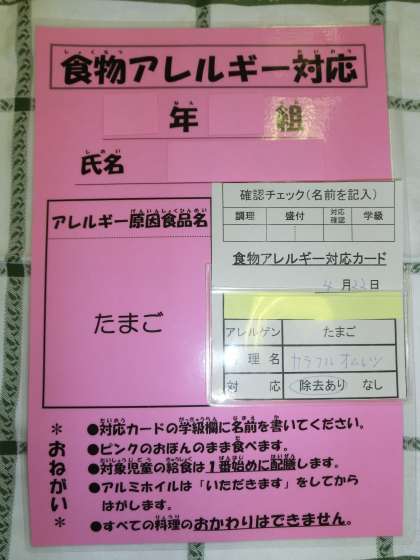 食物アレルギー対応
年 組
氏名
アレルギー原因食品名
たまご
確認チェック(名前を記入)
調理 盛付 対応確認 学級
食物アレルギー対応カード
4月22日
アレルゲン たまご
理名 カラフルオムレツ
対応 除去あり なし
＊おねがい＊
●対応カードの学級欄に名前を書いてください。
●ピンクのおぼんのまま食べます。
●対象児童の給食は1番始めに配膳します。
●アルミホイルは「いただきます」をしてから
はがします。
●すべての料理のおかわりはできません。